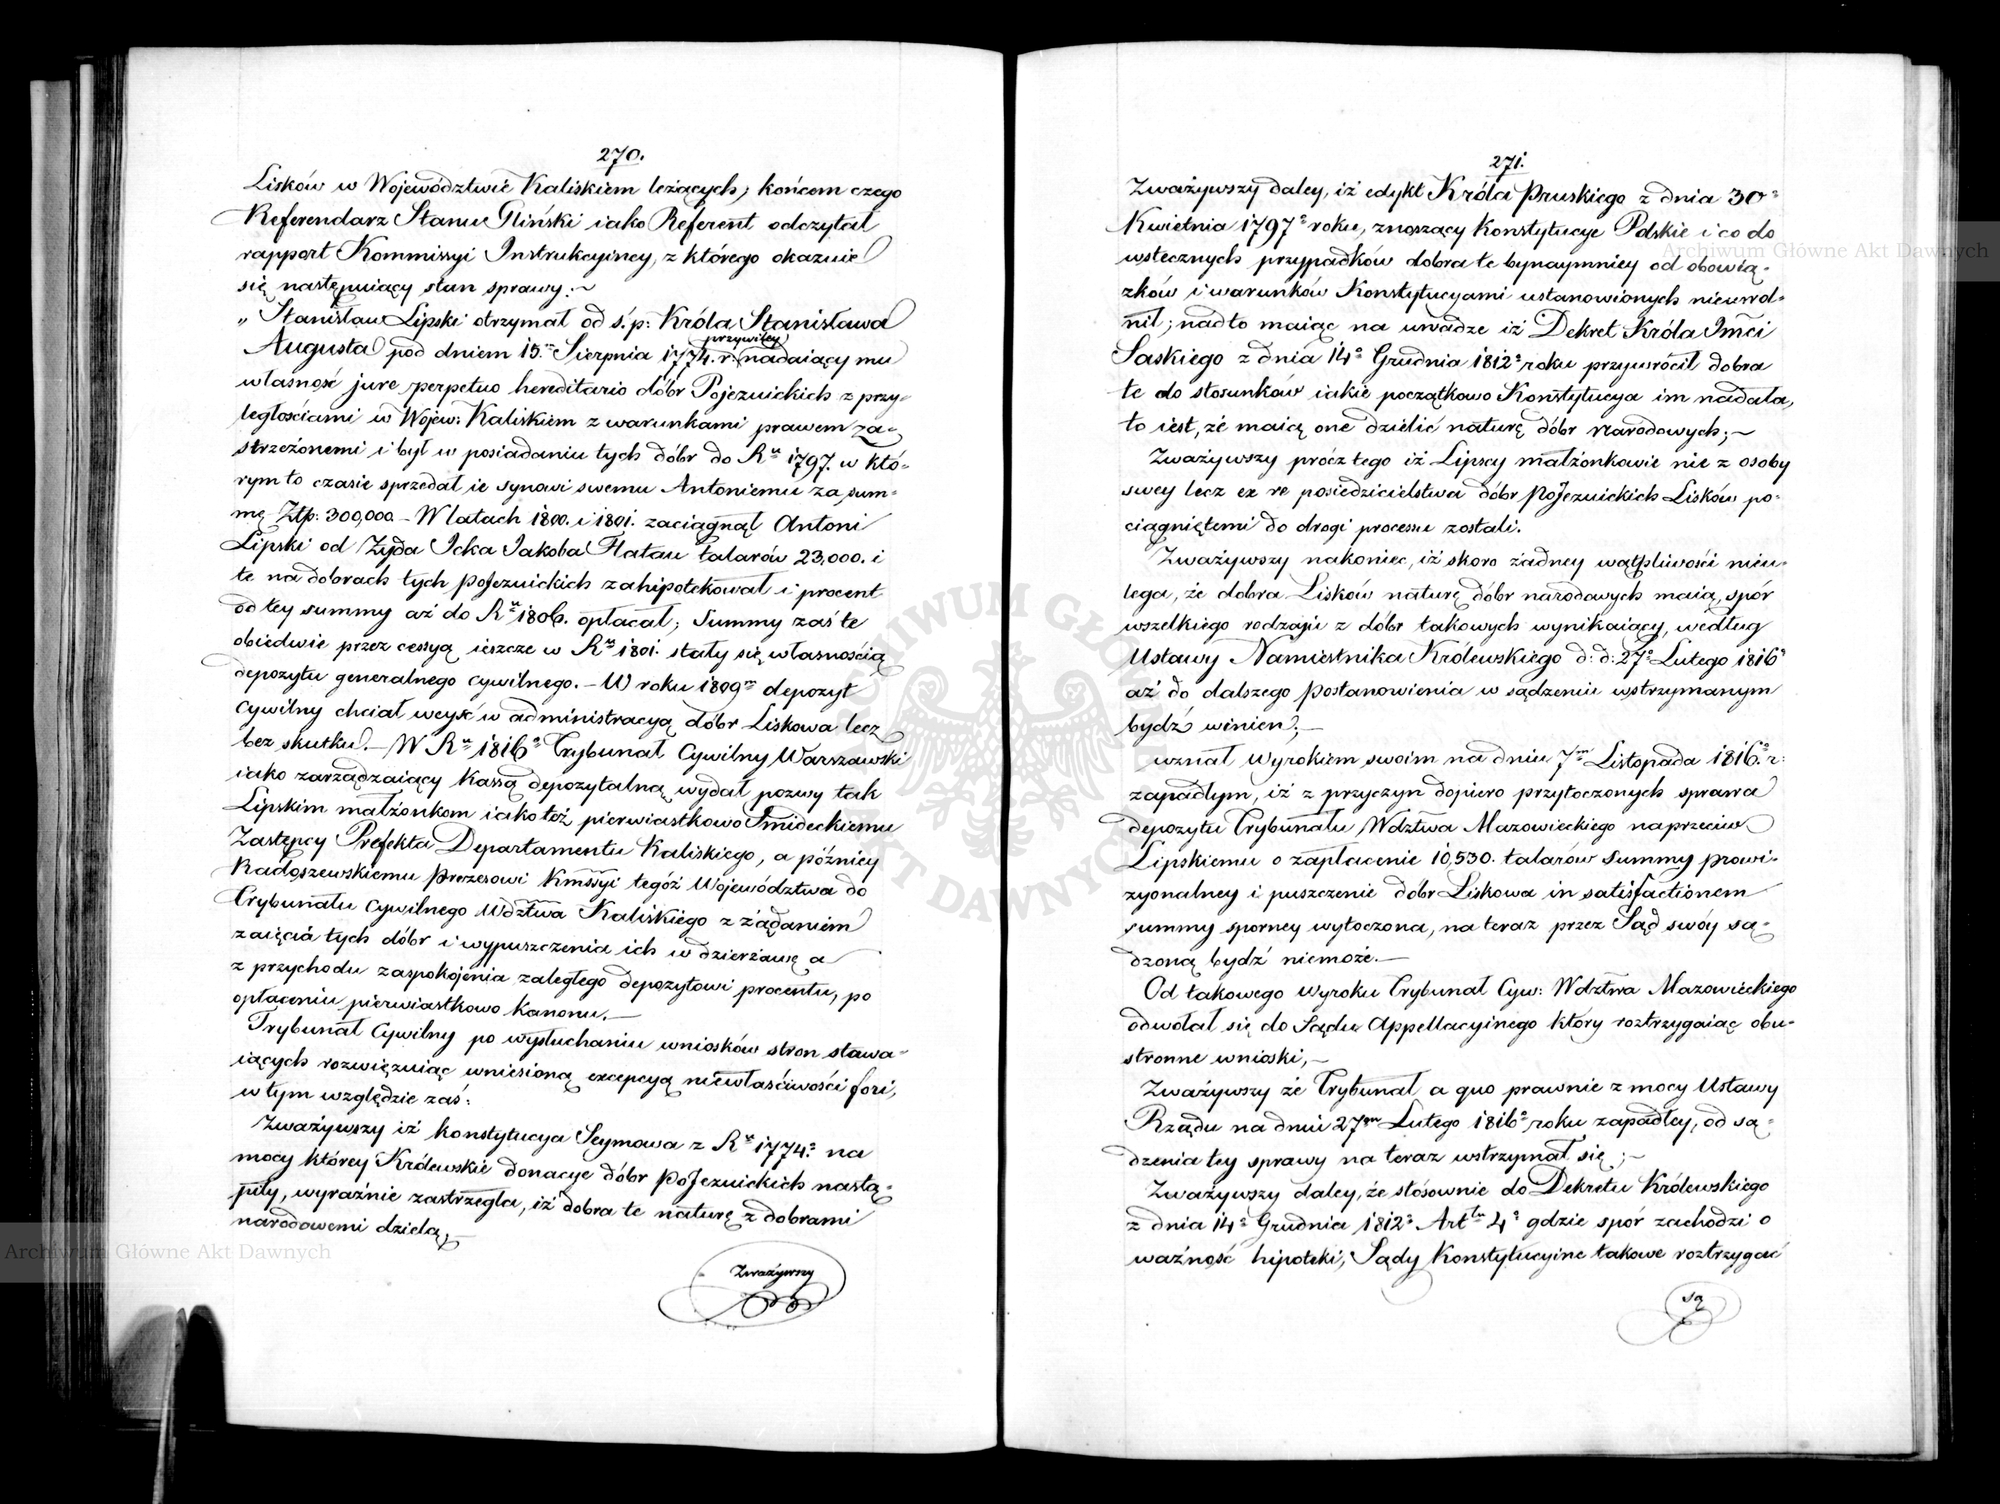 270.
Lisków w Województwie Kaliskiem leżących; końcem czego
Referendarz Stanu Gliński iako Referent odczytał
rapport Kommissyi Instrukcyiney, z którego okazuie
się następuiący stan sprawy:~
„Stanisław Lipski otrzymał od ś. p: Króla Stanisława
Augusta pod dniem 15.m Sierpnia 1774. r: przywiley nadaiący mu
własność jure perpetuo hereditario dóbr Pojezuickich z przy-
ległościami w Wojew: Kaliskiem z warunkami prawem za-
strzeżonemi i był w posiadaniu tych dóbr do R.u 1797. w któ-
rym to czasie sprzedał ie synowi swemu Antoniemu za sum-
mę Ztp: 300,000. – W latach 1800. i 1801. zaciągnął Antoni
Lipski od Żyda Icka Jakoba Flatau talarów 23,000. i
te na dobrach tych poJezuickich zahipotekował i procent
od tey summy aż do R.u 1806. opłacał; Summy zaś te
obiedwie przez cessyą ieszcze w R.u 1801. stały się własnością
depozytu generalnego cywilnego. – W roku 1809m depozyt
cywilny chciał weyść w administracyą dóbr Liskowa lecz
bez skutku. – W R.u 1816o Trybunał Cywilny Warszawski
iako zarządzaiący Kassą depozytalną wydał pozwy tak
Lipskim małżonkom iako też pierwiastkowo Smideckiemu
Zastępcy Prefekta Departamentu Kaliskiego, a późniey
Radoszewskiemu Prezesowi Kmssyi tegóż Województwa do
Trybunału Cywilnego Wdztwa Kaliskiego z żądaniem
zaięcia tych dóbr i wypuszczenia ich w dzierżawę a
z przychodu zaspokojenia zaległego depozytowi procentu, po
opłaceniu pierwiastkowo Kanonu. —
Trybunał Cywilny po wysłuchaniu wniosków stron stawa-
iących rozwięzuiąc wniesioną excepcyą niewłaściwości fori,
w tym względzie zaś:
Zważywszy iż konstytucya Seymowa z R.u 1774o na
mocy którey Królewskie donacye dóbr poJezuickich nastą-
piły, wyraźnie zastrzegła, iż dobra te naturę z dobrami
narodowemi dzielą, —
Zważywszy
271.
Zważywszy daley, iż edykt Króla Pruskiego z dnia 30o
Kwietnia 1797o roku, znoszący Konstytucye Polskie i co do
wstecznych przypadków dobra te bynaymniey od obowią-
zków i warunków Konstytucyami ustanowionych nieuwol-
nił; nadto maiąc na uwadze iż Dekret Króla Jmci
Saskiego z dnia 14o Grudnia 1812o roku przywrócił dobra
te do stosunków iakie początkowo Konstytucya im nadała,
to iest, że maią one dzielić naturę dóbr Narodowych; ~
Zważywszy prócz tego iż Lipscy małżonkowie nie z osoby
swey lecz ex re posiedzicielstwa dóbr PoJezuickich Lisków po-
ciągniętemi do drogi processu zostali.
Zważywszy nakoniec, iż skoro żadney wątpliwości nieu-
lega, że dobra Lisków naturę dóbr narodowych maią, spór
wszelkiego rodzaju z dóbr takowych wynikaiący, według
Ustawy Namiestnika Królewskiego d: d: 27o Lutego 1816o
aż do dalszego postanowienia w sądzeniu wstrzymanym
bydź winien; —
uznał Wyrokiem swoim na dniu 7m Listopada 1816o r:
zapadłym, iż z przyczyn dopiero przytoczonych sprawa
depozytu Trybunału Wdztwa Mazowieckiego naprzeciw
Lipskiemu o zapłacenie 10,530. talarów Summy prowi-
zyonalney i puszczenie dóbr Liskowa in satisfactionem
summy sporney wytoczona, na teraz przez Sąd swóy są-
dzoną bydź niemoże. —
Od takowego Wyroku Trybunał Cyw: Wdztwa Mazowieckiego
odwołał się do Sądu Appellacyinego który roztrzygaiąc obu-
stronne wnioski, ~
Zważywszy że Trybunał a quo prawnie z mocy Ustawy
Rządu na dniu 27m Lutego 1816o roku zapadłey, od są-
dzenia tey sprawy na teraz wstrzymał się; ~
Zważywszy daley, że stósownie do Dekretu Królewskiego
z dnia 14o Grudnia 1812o Arttu 4o gdzie spór zachodzi o
ważność hipoteki, Sądy Konstytucyine takowe roztrzygać
są
Archiwum Główne Akt Dawnych
Archiwum Główne Akt Dawnych
ARCHIWUM GŁÓWNE AKT DAWNYCH